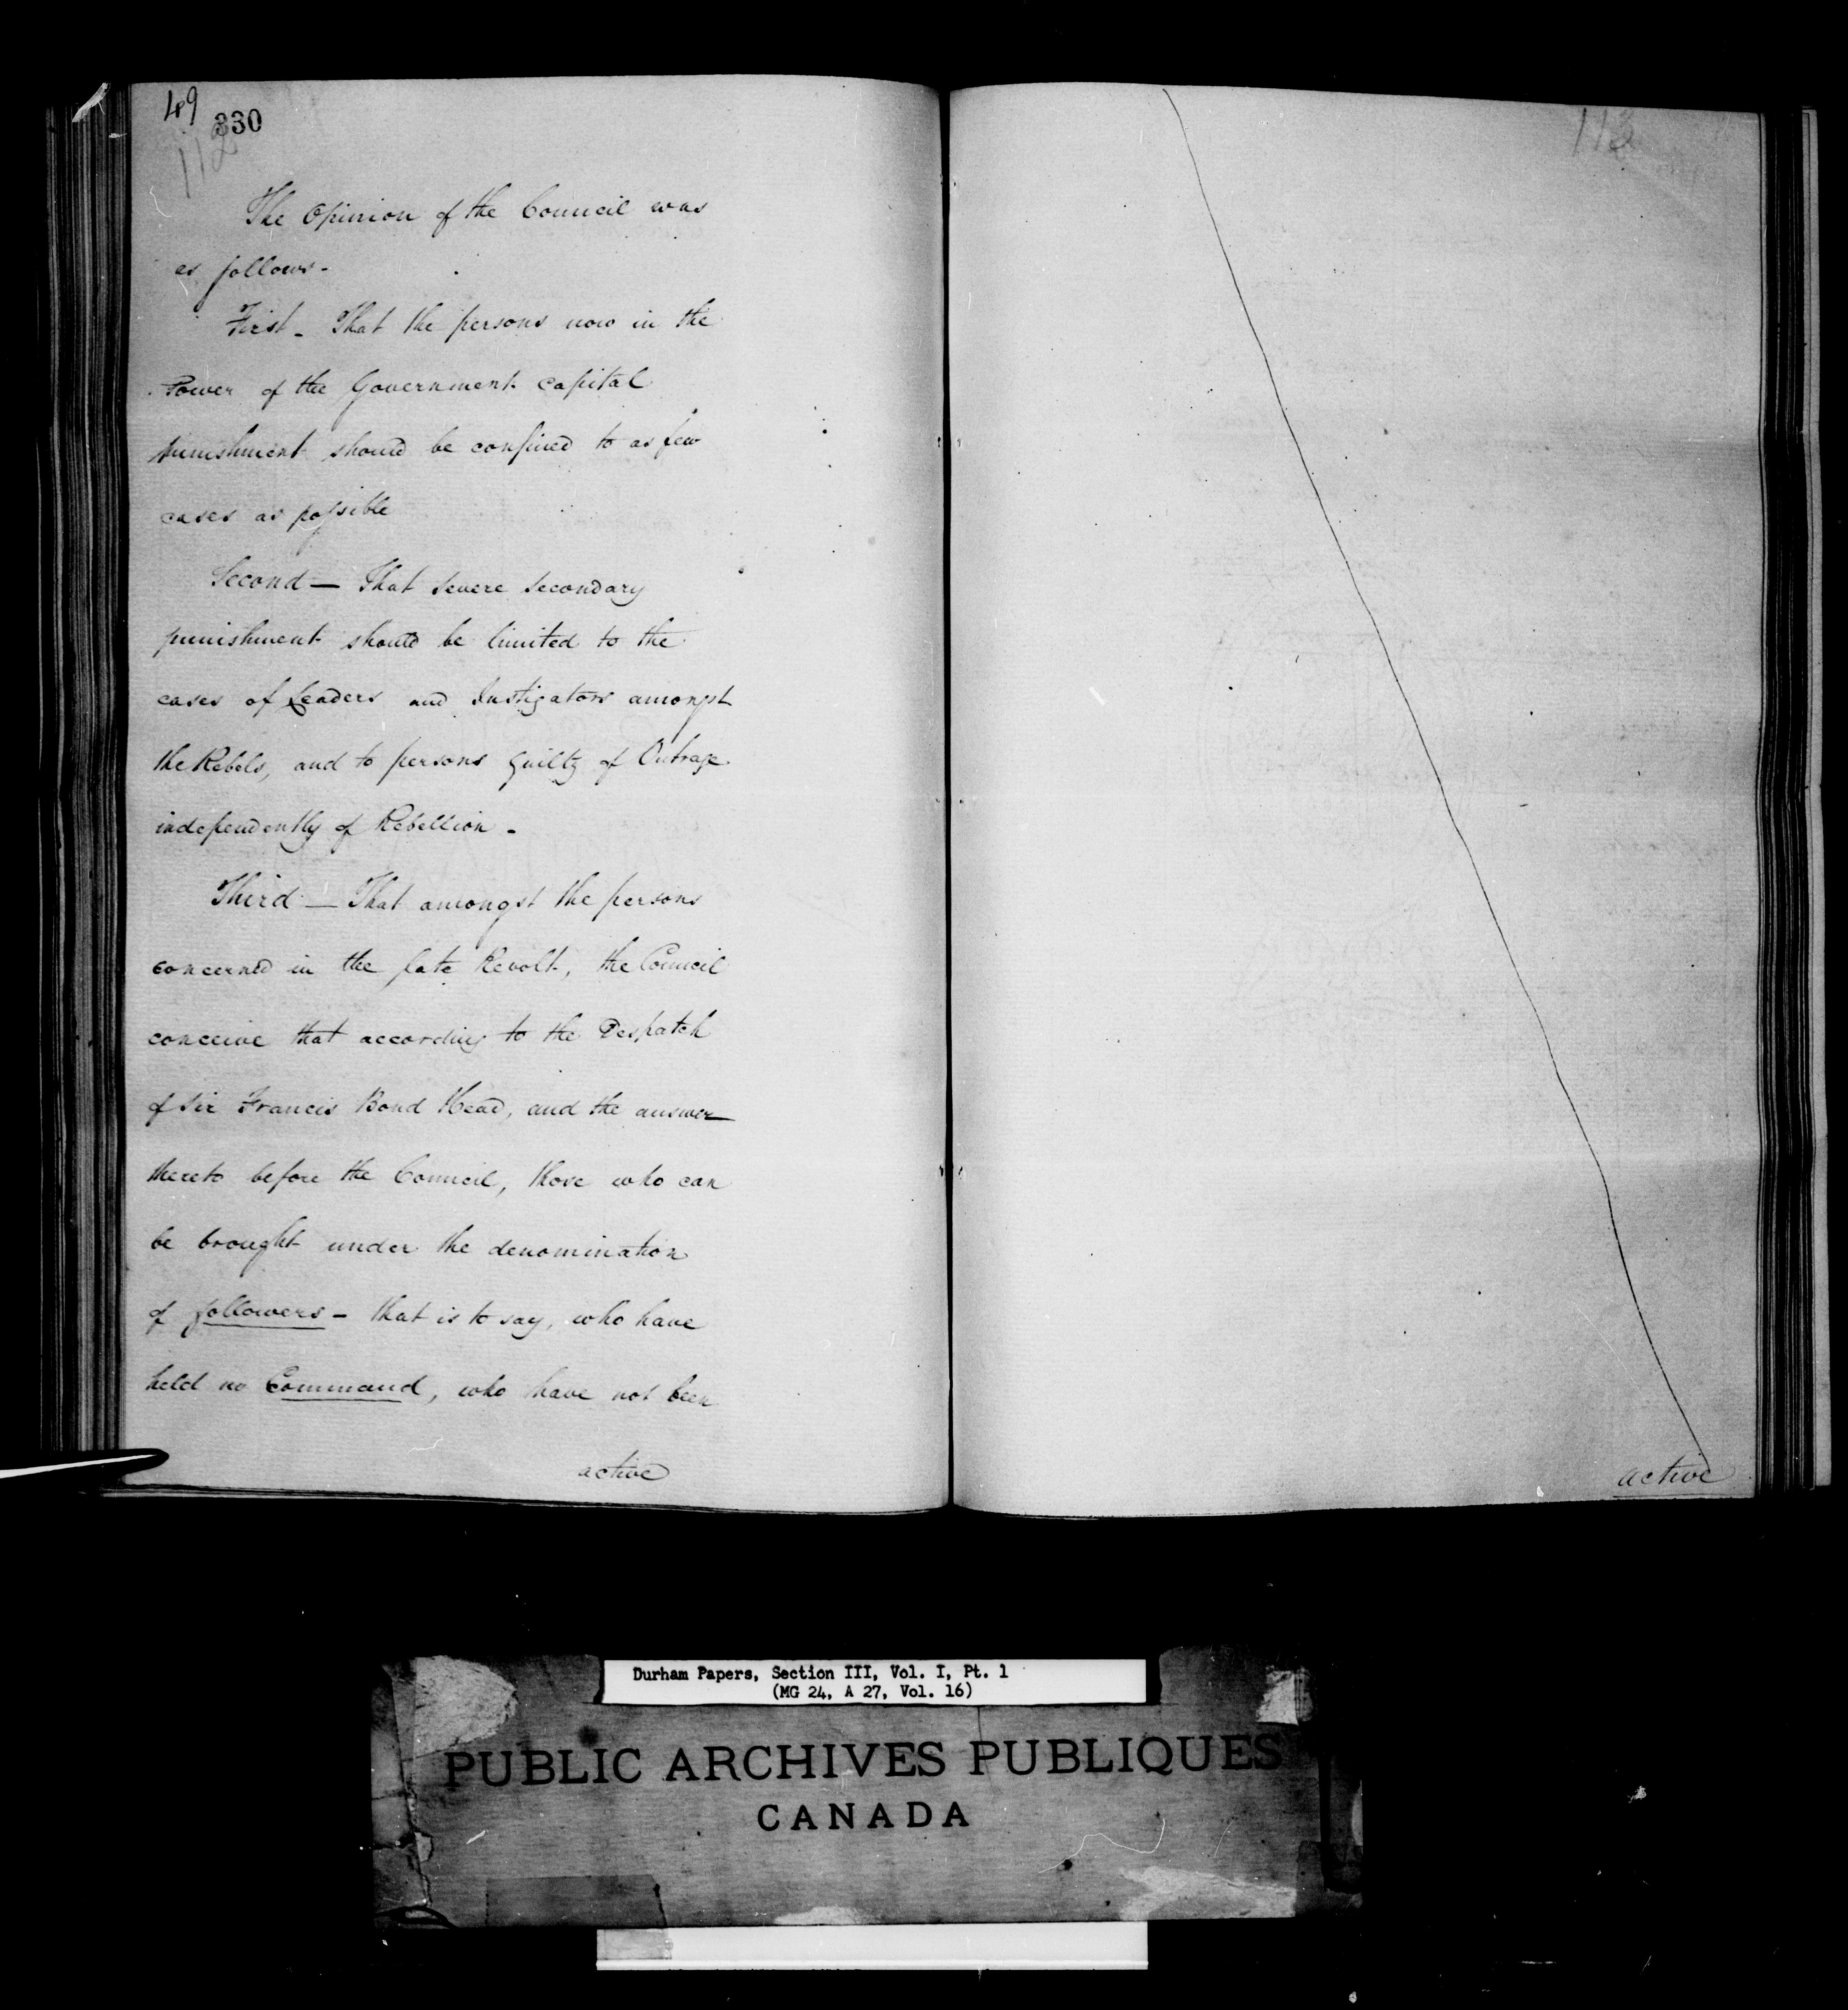 49
330
112
The Opinion of the Council was
as follows -
First - That the persons now in the
Power of the Government capital
punishment should be confined to as few
cases as possible
Second - That severe secondary
punishment should be limited to the
cases of Leaders and Instigators amongst
the Rebels, and to persons guilty of Outrage
independently of Rebellion -
Third - That amongst the persons
concerned in the late Revolt, the Council
conceive that according to the Despatch
of Sir Francis Bond Head, and the answer
thereto before the Council, those who can
be brought under the denomination
of followers - that is to say, who have
held no Command, who have not been
active
113
active
Durham Papers, Section III, Vol. I, Pt. 1
(MG 24, A 27, Vol. 16)
PUBLIC ARCHIVES PUBLIQUES
CANADA